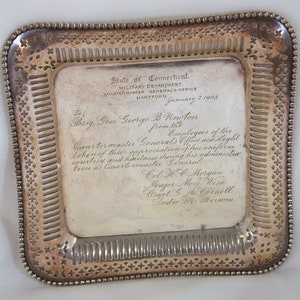 State of Connecticut
MILITARY DEPARTMENT
QUARTERMASTER GENERAL'S OFFICE
HARTFORD
January 7 1903
To
Brig. Gen George B Newton
from the
Employees of the
Quartermaster General's Office as a slight
token of their appreciation of his uniform
courtesy and kindness during his administra
tion as Quartermaster General
Col. H. C. Morgan
Major M. J. Wise
Capt G. A. Cornell
Sadie M. Merwin